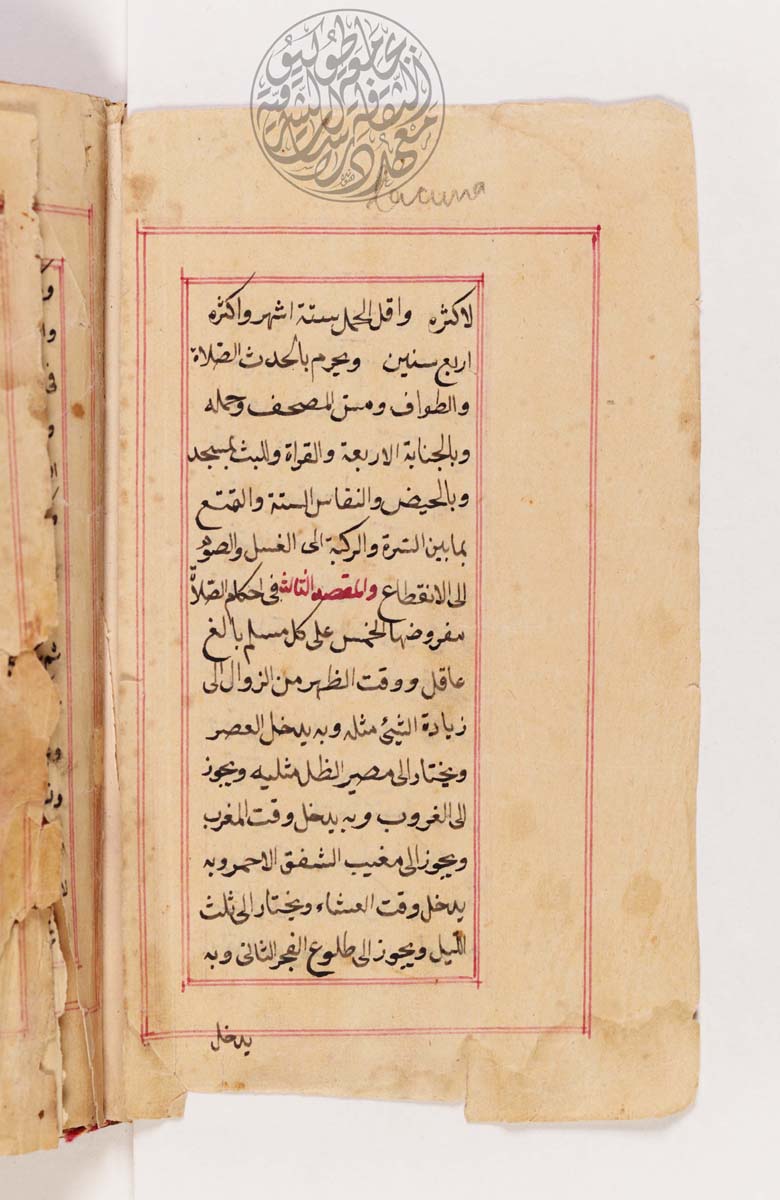 lacuna
لاكثره واقل الحمل ستة اشهر واكثره
اربع سنين ويحرم بالحدث الصلاة
والطواف ومس المصحف وحمله
وبالجنابة الاربعة والقراة واللبث بمسجد
وبالحيض والنفاس الستة والتمتع
بما بين السرة والركبة الى الغسل والصوم
الى الانقطاع والمقصد الثالث في احكام الصلاة
مفروضها الخمس على كل مسلم بالغ
عاقل ووقت الظهر من الزوال الى
زيادة الشيئ مثله وبه يدخل العصر
ويختار الى مصير الظل مثليه ويجوز
الى الغروب وبه يدخل وقت المغرب
ويجوز الى مغيب الشفق الاحمر وبه
يدخل وقت العشاء ويختار الى ثلث
الليل ويجوز الى طلوع الفجر الثاني وبه
يدخل